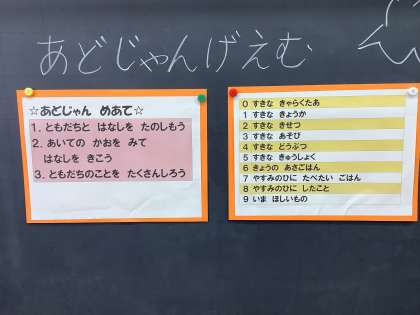 あどじゃんげえむ
☆あどじゃん めあて☆
1. ともだちと はなしを たのしもう
2. あいての かおを みて
はなしを きこう
3. ともだちのことを たくさんしろう
0 すきな きゃらくたあ
1 すきな きょうか
2 すきな きせつ
3 すきな あそび
4 すきな どうぶつ
5 すきな きゅうしょく
6 きょうの あさごはん
7 やすみのひに たべたい ごはん
8 やすみのひに したこと
9 いま ほしいもの